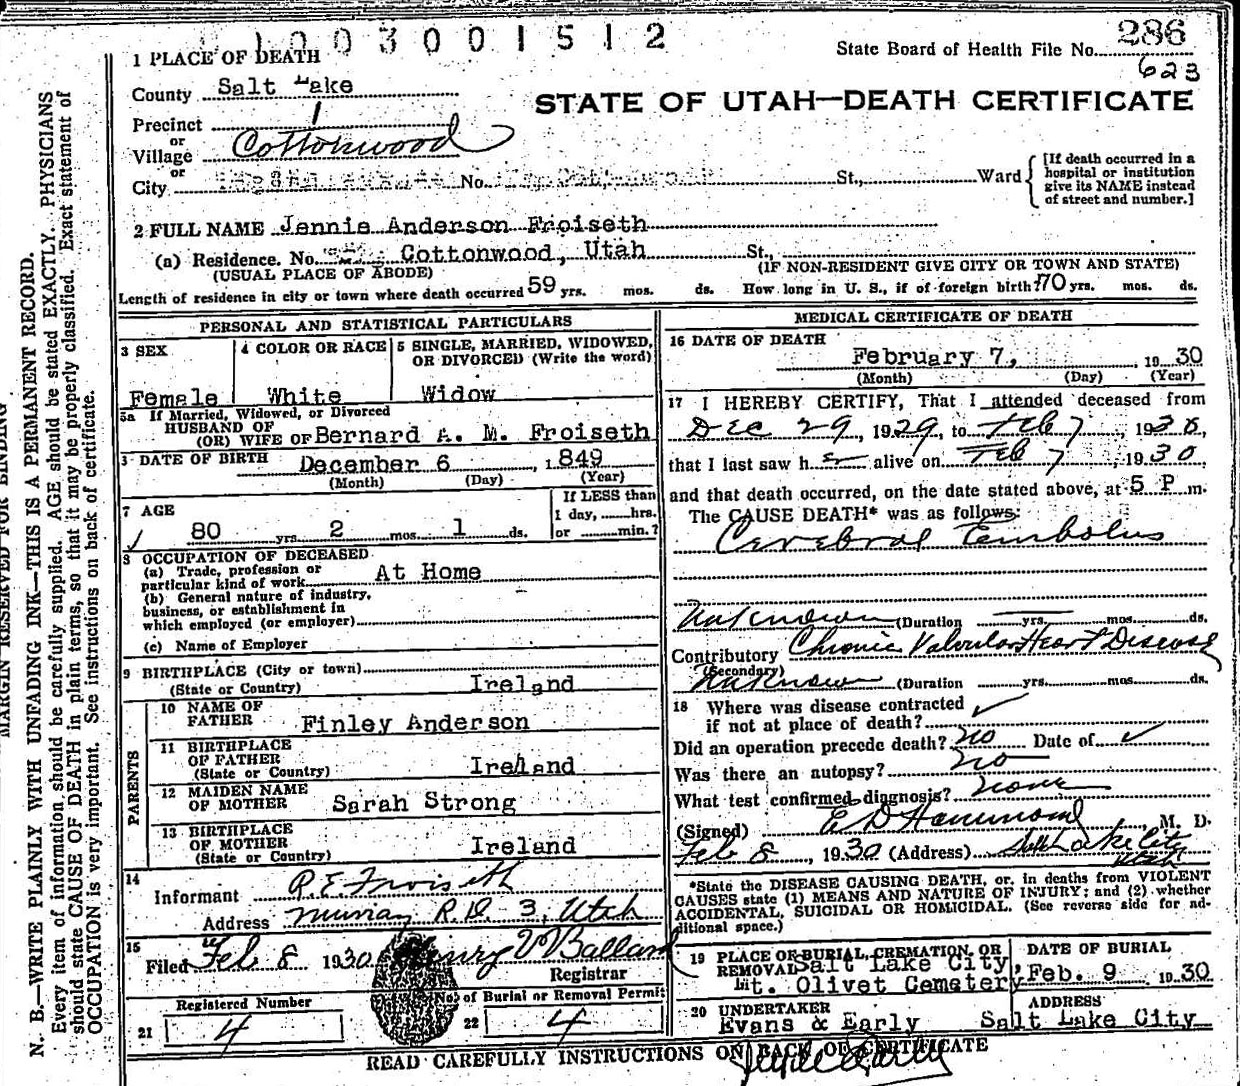 1003001512
State Board of Health File No. 286
623
1 PLACE OF DEATH
STATE OF UTAH—DEATH CERTIFICATE
County Salt Lake
Precinct 1
or
Village Cottonwood
or
City No. St., Ward
[If death occurred in a
hospital or institution
give its NAME instead
of street and number.]
2 FULL NAME Jennie Anderson Froiseth
(a) Residence. No. Cottonwood, Utah St.,
(USUAL PLACE OF ABODE) (IF NON-RESIDENT GIVE CITY OR TOWN AND STATE)
Length of residence in city or town where death occurred 59 yrs. mos. ds. How long in U. S., if of foreign birth? 70 yrs. mos. ds.
PERSONAL AND STATISTICAL PARTICULARS
3 SEX
Female
4 COLOR OR RACE
White
5 SINGLE, MARRIED, WIDOWED,
OR DIVORCED (Write the word)
Widow
5a If Married, Widowed, or Divorced
HUSBAND OF
(OR) WIFE OF Bernard A. M. Froiseth
DATE OF BIRTH December 6, 1849
(Month) (Day) (Year)
7 AGE
80 yrs. 2 mos. 1 ds.
If LESS than
1 day, hrs.
or min.?
8 OCCUPATION OF DECEASED
(a) Trade, profession or
particular kind of work At Home
(b) General nature of industry,
business, or establishment in
which employed (or employer)
(c) Name of Employer
9 BIRTHPLACE (City or town)
(State or Country) Ireland
PARENTS
10 NAME OF
FATHER Finley Anderson
11 BIRTHPLACE
OF FATHER
(State or Country) Ireland
12 MAIDEN NAME
OF MOTHER Sarah Strong
13 BIRTHPLACE
OF MOTHER
(State or Country) Ireland
14
Informant R. E. Froiseth
Address Murray R. D. 3, Utah
15
Filed Feb 8 1930 Henry W Ballard
Registrar
Registered Number
21 4
No. of Burial or Removal Permit
22 4
MEDICAL CERTIFICATE OF DEATH
16 DATE OF DEATH
February 7, 1930
(Month) (Day) (Year)
17 I HEREBY CERTIFY, That I attended deceased from
Dec 29, 1929, to Feb 7, 1930,
that I last saw her alive on Feb 7, 1930,
and that death occurred, on the date stated above, at 5 P m.
The CAUSE DEATH* was as follows:
Cerebral Embolus
Unknown (Duration yrs. mos. ds.
Contributory Chronic Valvular Heart Disease
(Secondary)
Unknown (Duration yrs. mos. ds.
18 Where was disease contracted
if not at place of death?
Did an operation precede death? no Date of
Was there an autopsy? no
What test confirmed diagnosis? none
(Signed) E D Hammond, M. D.
Feb 8, 1930 (Address) Salt Lake City
Utah
*State the DISEASE CAUSING DEATH, or, in deaths from VIOLENT
CAUSES state (1) MEANS AND NATURE OF INJURY; and (2) whether
ACCIDENTAL, SUICIDAL OR HOMICIDAL. (See reverse side for ad-
ditional space.)
19 PLACE OF BURIAL, CREMATION, OR
REMOVAL Salt Lake City,
Mt. Olivet Cemetery
DATE OF BURIAL
Feb. 9 1930
20 UNDERTAKER
Evans & Early
ADDRESS
Salt Lake City
READ CAREFULLY INSTRUCTIONS ON BACK OF CERTIFICATE
MARGIN RESERVED FOR BINDING
N. B.—WRITE PLAINLY WITH UNFADING INK—THIS IS A PERMANENT RECORD.
Every item of information should be carefully supplied. AGE should be stated EXACTLY. PHYSICIANS
should state CAUSE OF DEATH in plain terms, so that it may be properly classified. Exact statement of
OCCUPATION is very important. See instructions on back of certificate.